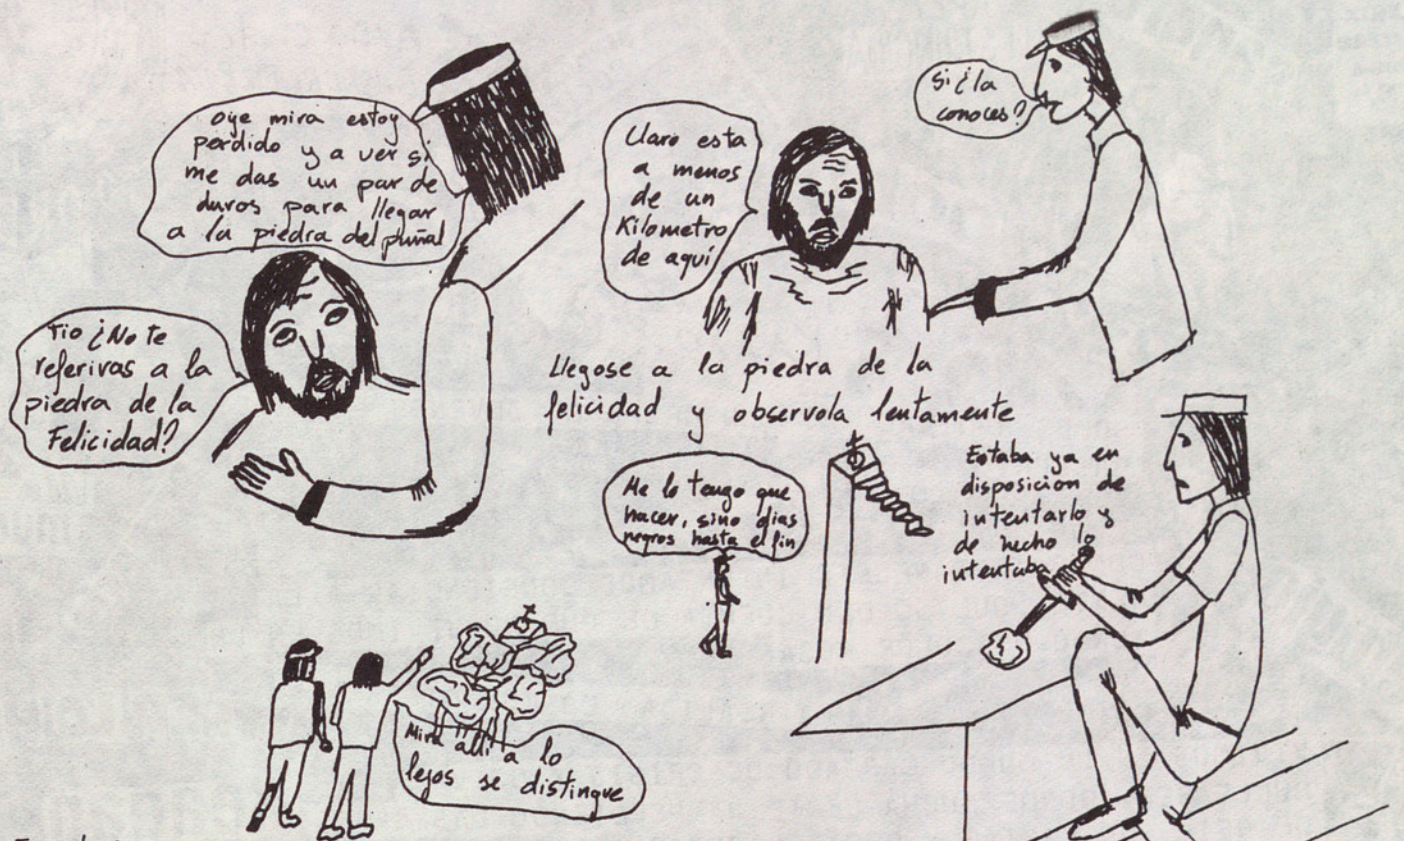 oye mira estoy
perdido y a ver si
me das un par de
duros para llegar
a la piedra del puñal
Tio ¿No te
referiras a la
piedra de la
Felicidad?
Si ¿la
conoces?
Claro esta
a menos
de un
Kilometro
de aquí
Mira alli a lo
lejos se distingue
Llegose a la piedra de la
felicidad y observola lentamente
Me lo tengo que
hacer, sino dias
negros hasta el fin
Estaba ya en
disposicion de
intentarlo y
de hecho lo
intentaba